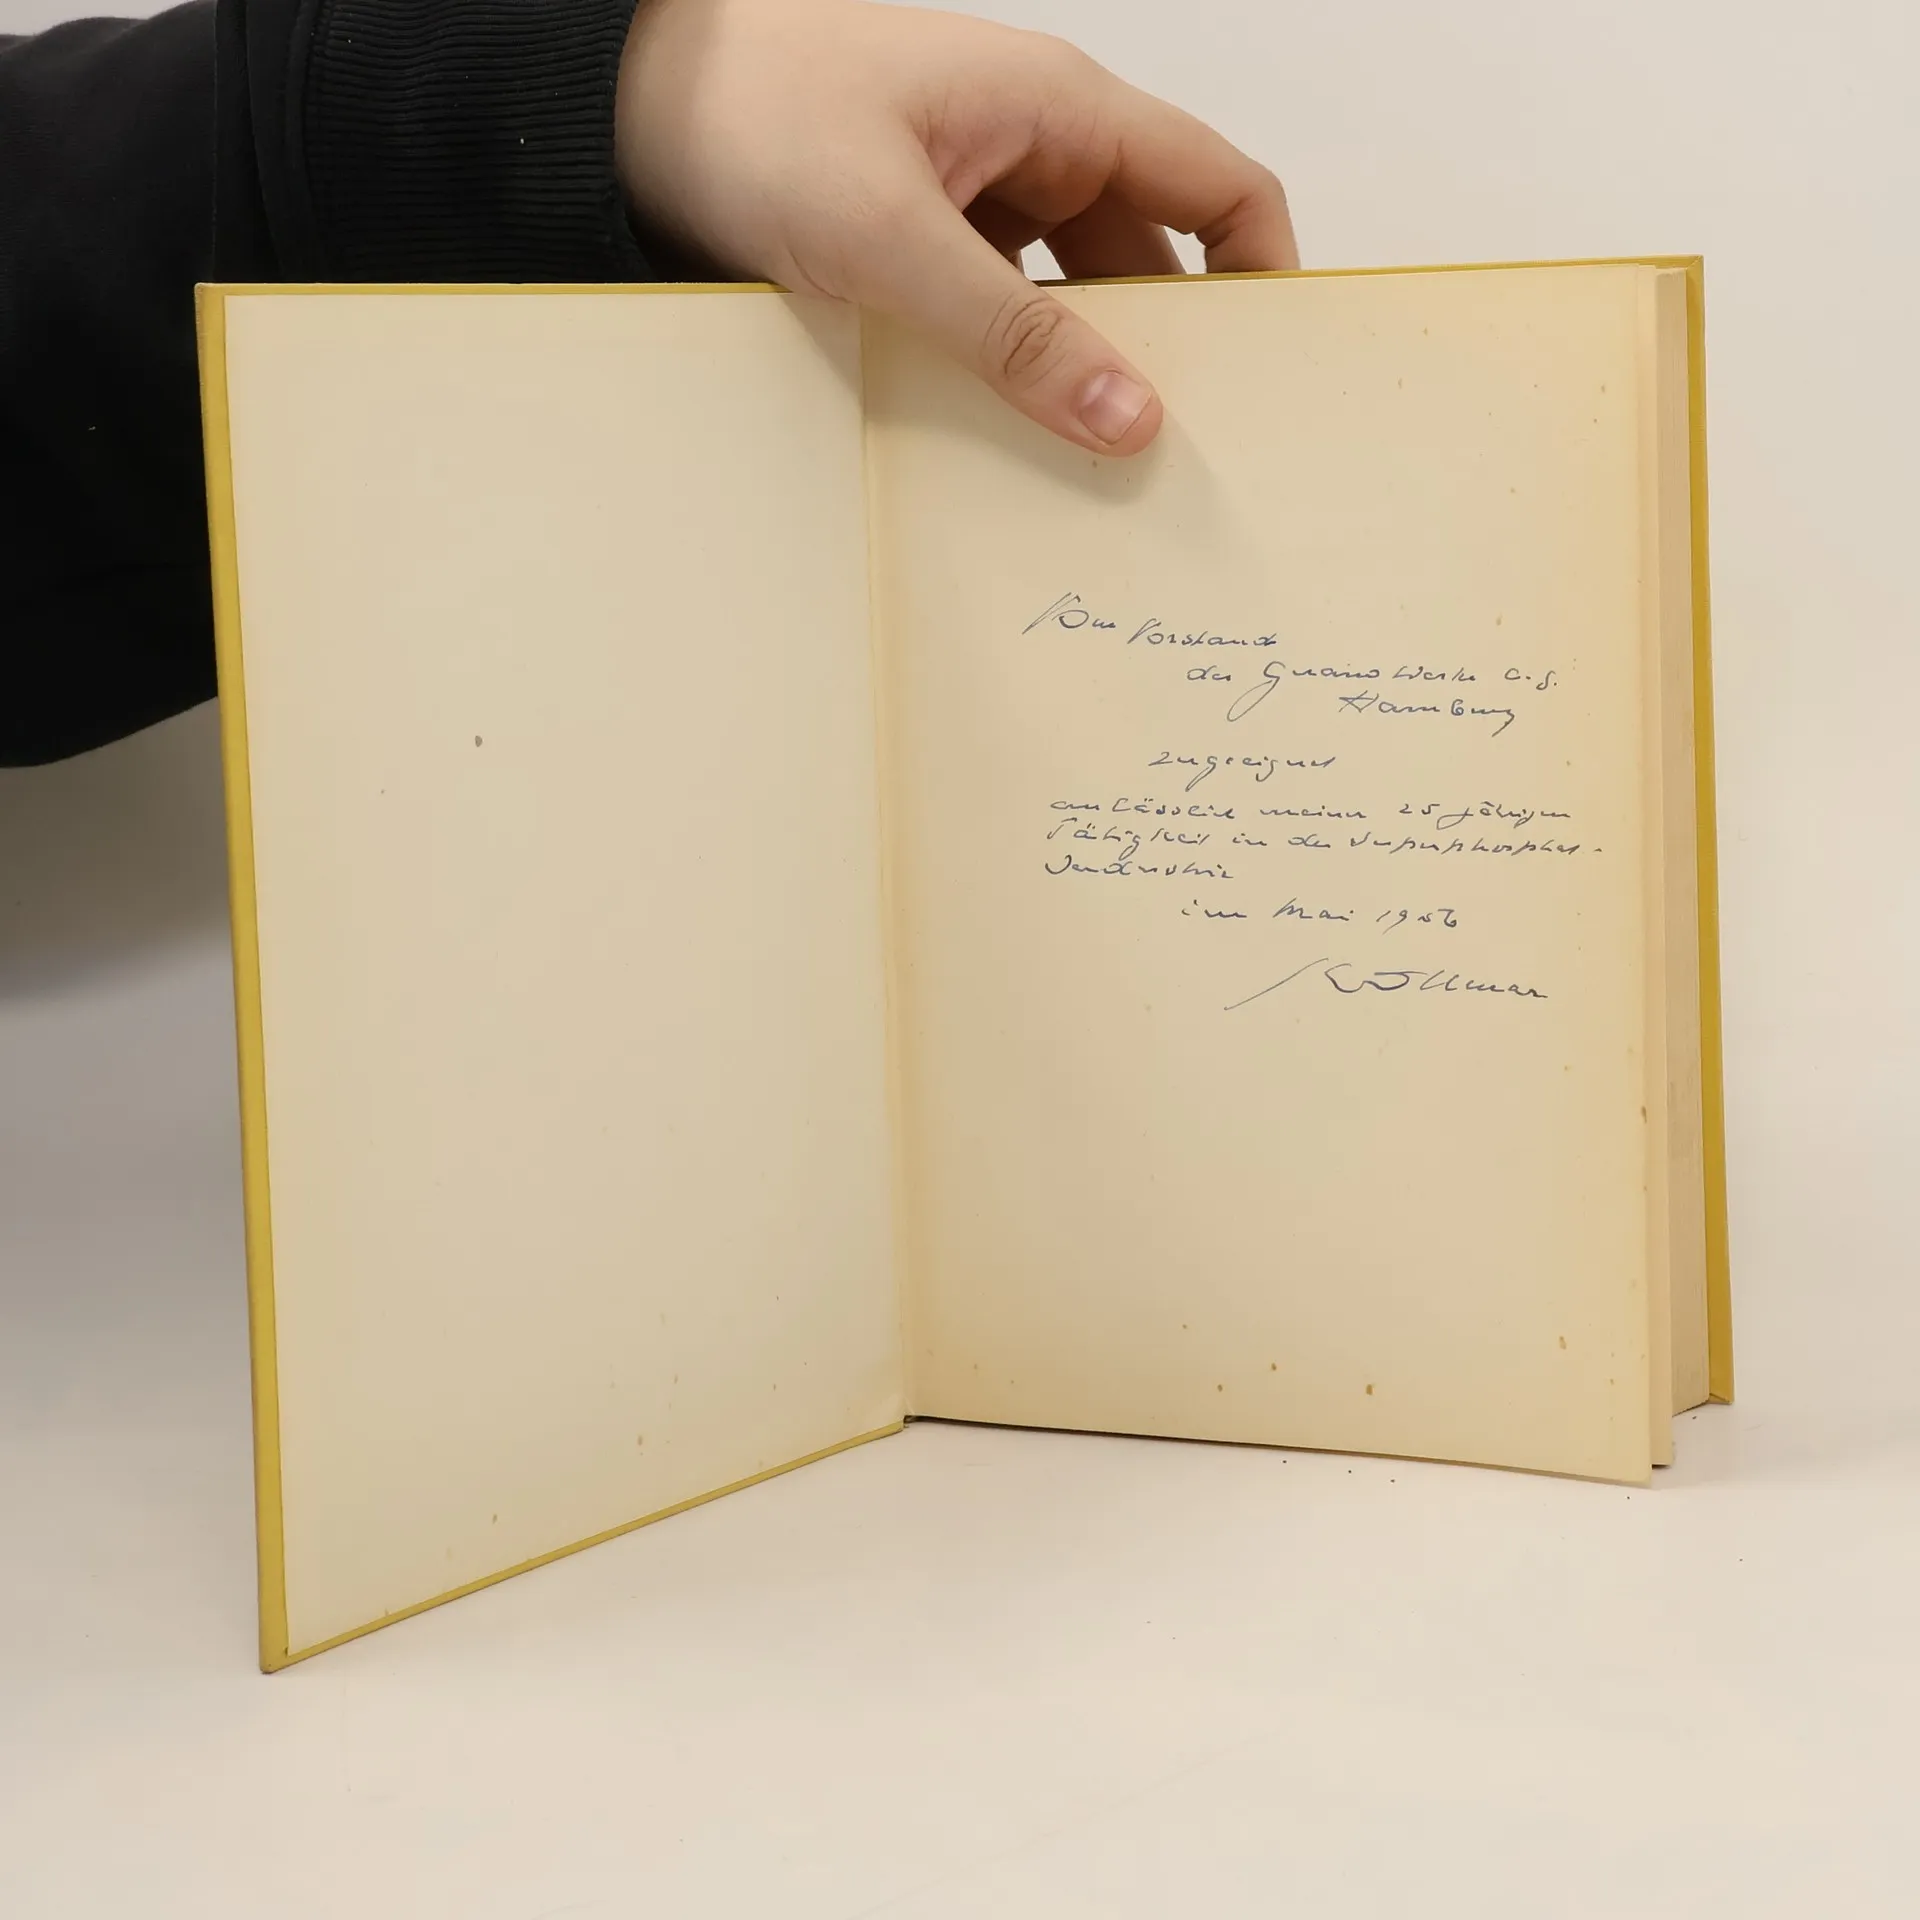 Vom Vorstand
der Guano Werke A.G.
Hamburg
zugeeignet
anlässlich meiner 25 jährigen
Tätigkeit in der Superphosphat-
Industrie
im Mai 1956